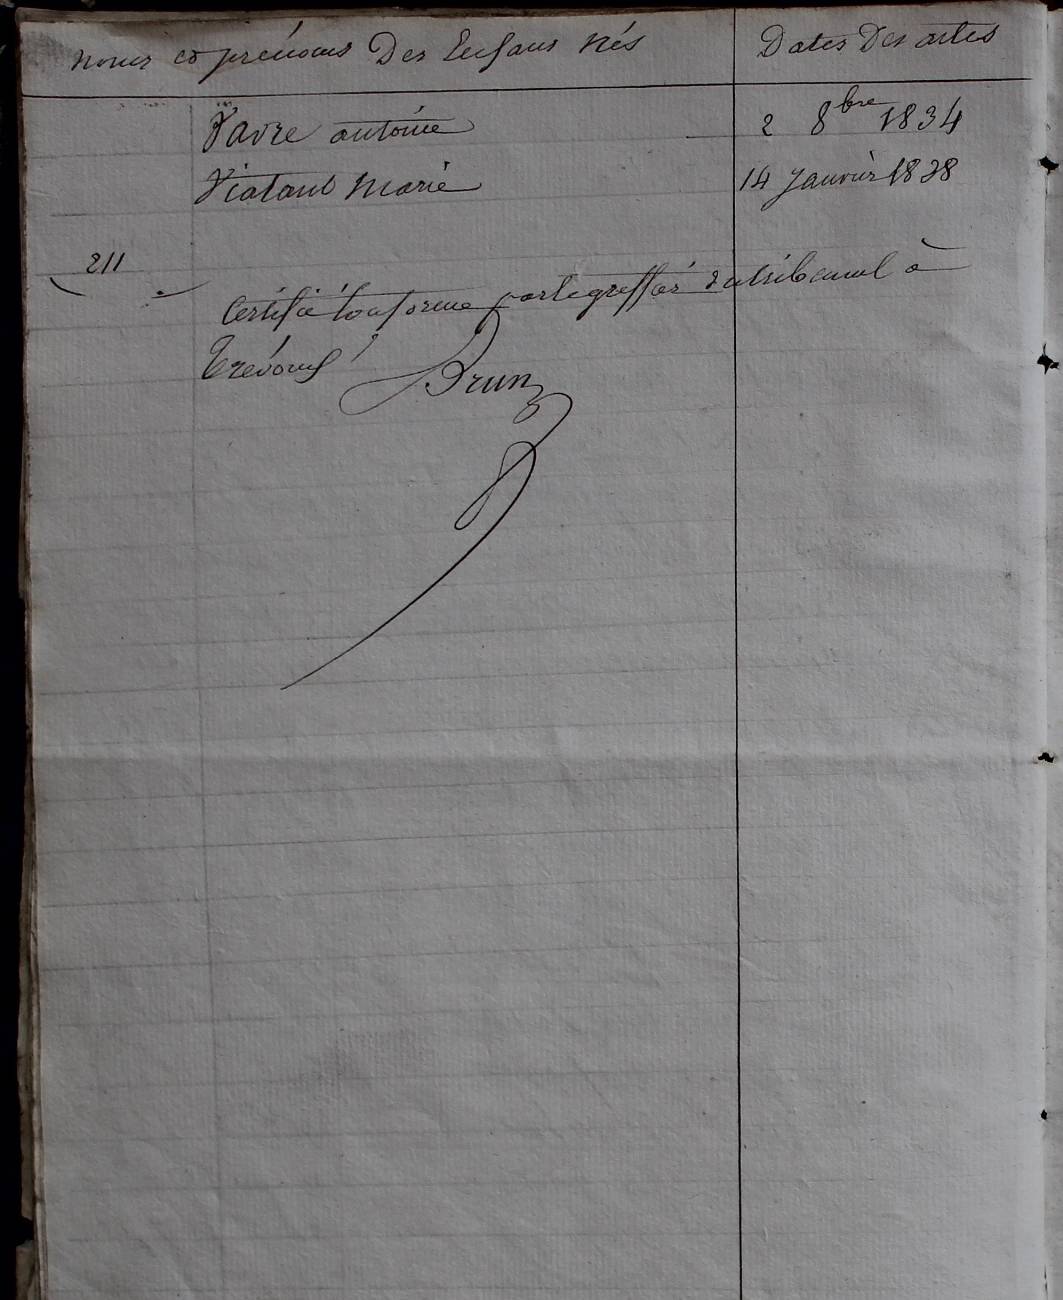 noms et prénoms Des Enfans nés Dates Des actes
Favre antoine 2 8bre 1834
Viatard Marie 14 Janvier 1838
211
Certifié Conforme par le greffier du tribunal à
Trévoux
Brun